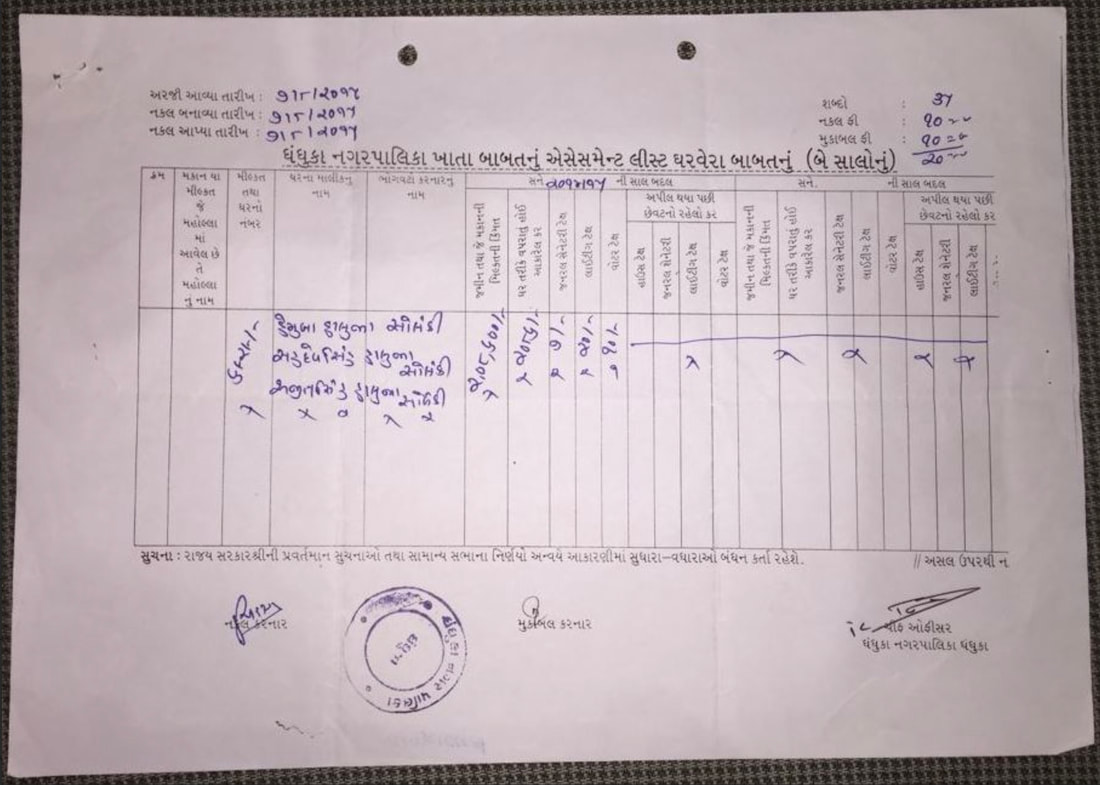 અરજી આવ્યા તારીખ : ૭/૮/૨૦૧૫
નકલ બનાવ્યા તારીખ : ૭/૮/૨૦૧૫
નકલ આપ્યા તારીખ : ૭/૮/૨૦૧૫
શબ્દો : 37
નકલ ફી : ૧૦
મુકાબલ ફી : ૧૦
૨૦
ધંધુકા નગરપાલિકા ખાતા બાબતનું એસેસમેન્ટ લીસ્ટ ઘરવેરા બાબતનું (બે સાલોનું)
ક્રમ
મકાન યા મીલ્કત જે મહોલ્લા માં આવેલ છે તે મહોલ્લા નું નામ
મીલ્કત તથા ઘરનો નંબર
ઘરના માલીકનું નામ
ભોગવટો કરનારનું નામ
સને ૨૦૧૪/૧૫ ની સાલ બદલ
જમીન તથા જે મકાનની મિલ્કતની કિંમત
ઘર તરીકે વપરાતુ હોઈ આકારેલ કર
જનરલ સેનેટરી ટેક્ષ
લાઈટીંગ ટેક્ષ
વોટર ટેક્ષ
અપીલ થયા પછી છેવટનો રહેલો કર
હાઉસ ટેક્ષ
જનરલ સેનેટરી
લાઈટીંગ ટેક્ષ
વોટર ટેક્ષ
સને. ની સાલ બદલ
જમીન તથા જે મકાનની મિલ્કતની કિંમત
ઘર તરીકે વપરાતુ હોઈ આકારેલ કર
જનરલ સેનેટરી ટેક્ષ
લાઈટીંગ ટેક્ષ
વોટર ટેક્ષ
અપીલ થયા પછી છેવટનો રહેલો કર
હાઉસ ટેક્ષ
જનરલ સેનેટરી
લાઈટીંગ ટેક્ષ
સોલંકી
સોલંકી
સોલંકી
૭/-
૨૦/-
૧૦/-
સુચના : રાજય સરકારશ્રીની પ્રવર્તમાન સુચનાઓ તથા સામાન્ય સભાના નિર્ણયો અન્વયે આકારણીમાં સુધારા-વધારાઓ બંધન કર્તા રહેશે.
// અસલ ઉપરથી ન
નકલ કરનાર
મુકાબલ કરનાર
ચીફ ઓફીસર
ધંધુકા નગરપાલિકા ધંધુકા
ધંધુકા નગર પાલિકા
ધંધુકા